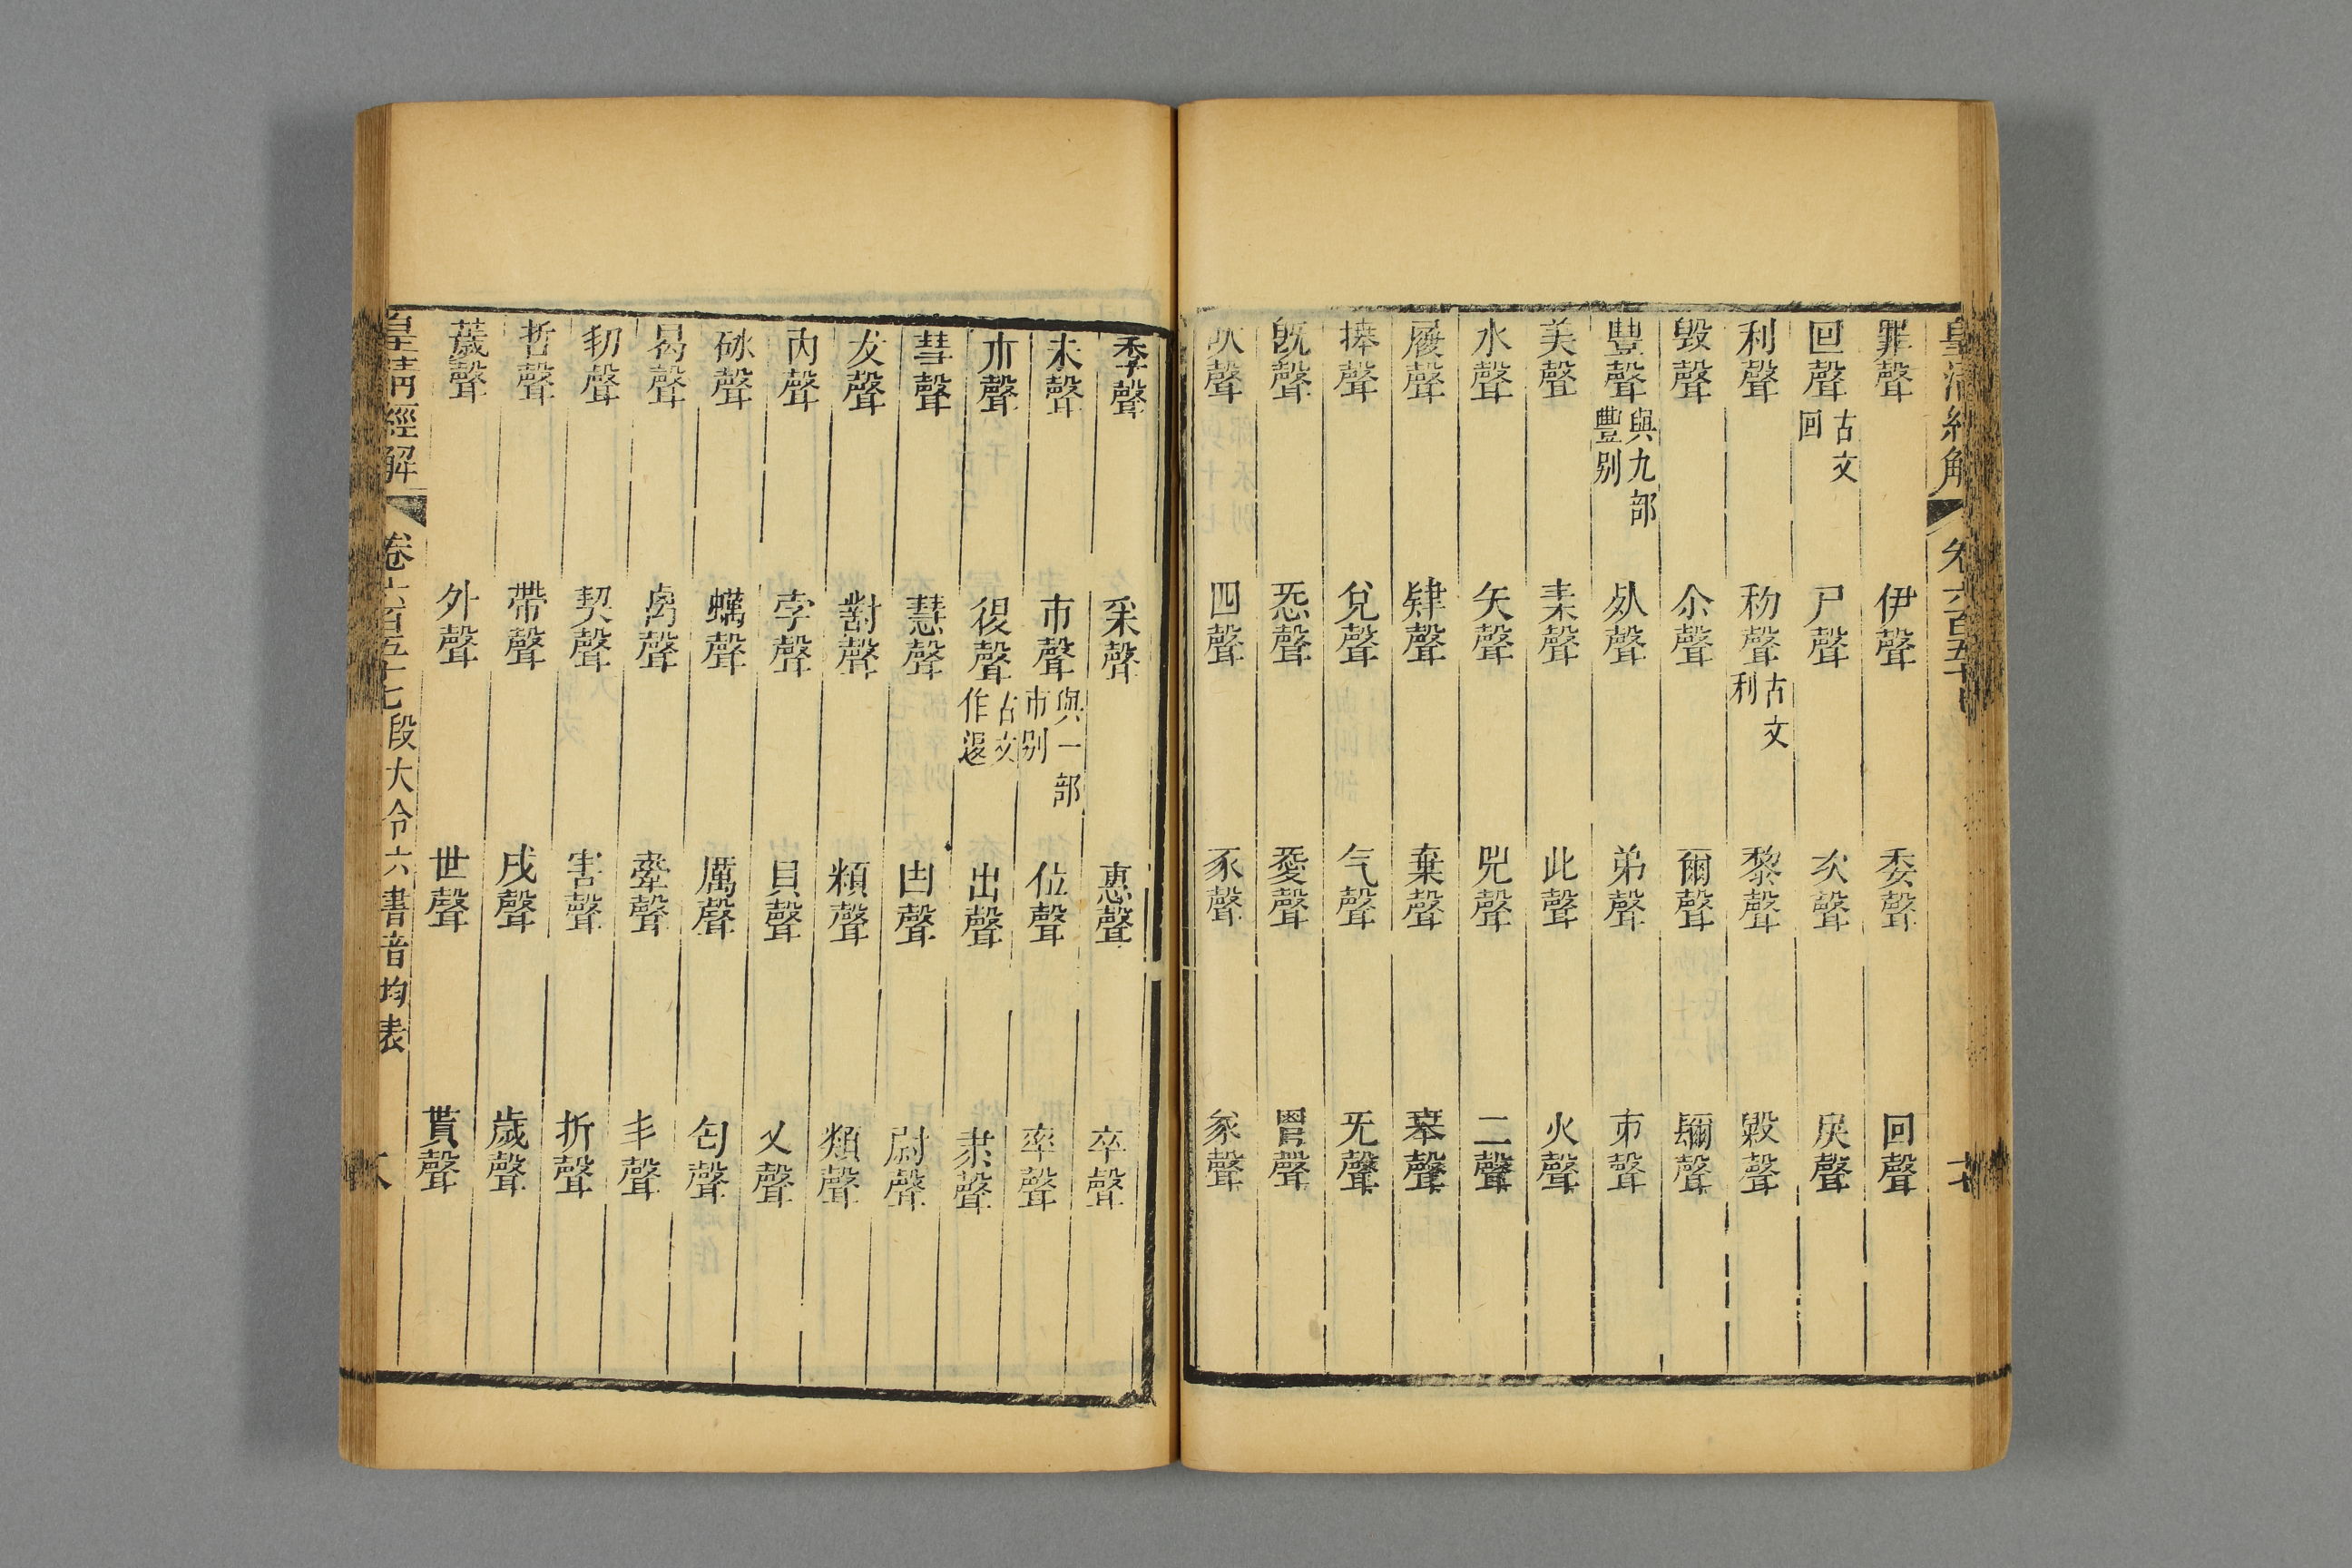 皇清經解 卷六百五十七
罪聲 伊聲 委聲 回聲
囘聲 古文回 尸聲 次聲 戾聲
利聲 𥝢聲 古文利 黎聲 毇聲
毀聲 尒聲 爾聲 镾聲
豊聲 與九部豐別 𣦸聲 弟聲 𠂔聲
美聲 耒聲 此聲 火聲
水聲 矢聲 兕聲 二聲
履聲 肄聲 棄聲 聲
捧聲 兌聲 气聲 旡聲
旣聲 㤅聲 愛聲 胃聲
聲 四聲 豕聲 豙聲
季聲 采聲 惠聲 卒聲
未聲 巿聲 與一部市別 位聲 率聲
朮聲 復聲 古文作𨓤 出聲 隶聲
彗聲 慧聲 甶聲 尉聲
犮聲 對聲 頪聲 類聲
內聲 孛聲 貝聲 乂聲
砅聲 蠣聲 厲聲 匃聲
曷聲 禼聲 舝聲 丯聲
㓞聲 契聲 害聲 折聲
哲聲 帶聲 戌聲 歲聲
薉聲 外聲 世聲 貰聲
皇清經解 卷六百五十七 段大令六書音均表